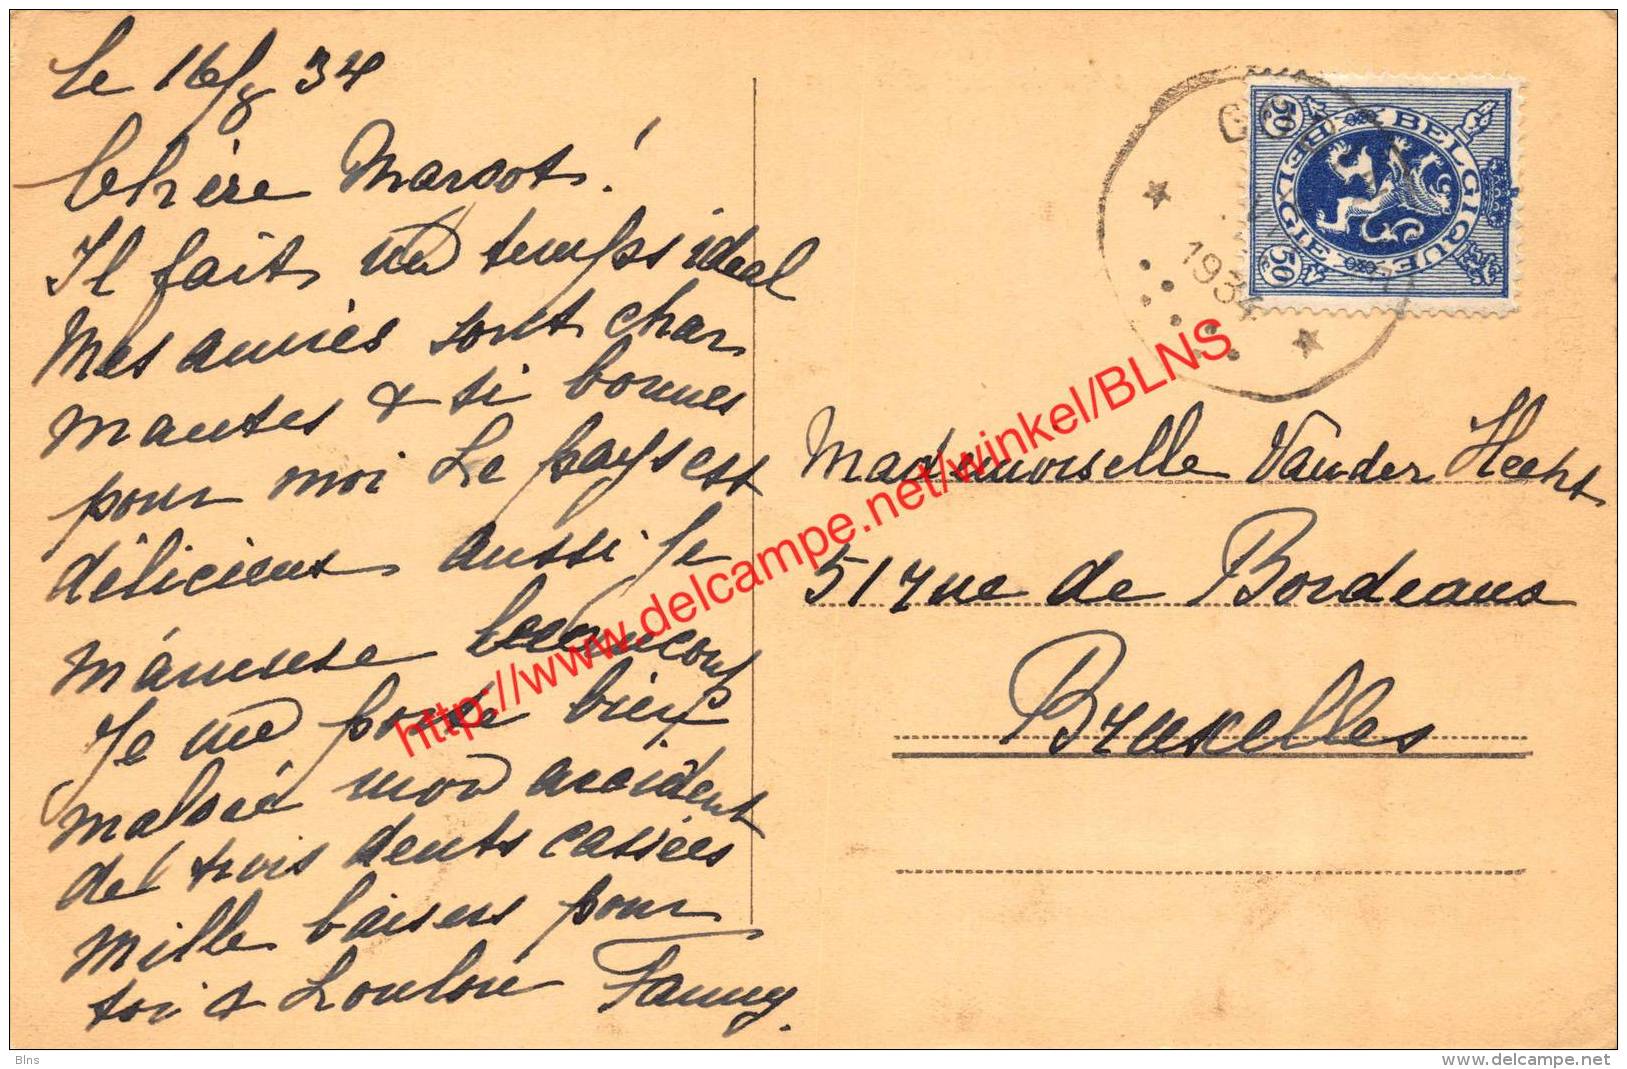 le 16/8 34
Chère Margot!
Il fait un temps idéal
Mes amies sont char
mantes & si bonnes
pour moi Le pays est
délicieux aussi Je
m'amuse beaucoup
Je me porte bien
malgré mon accident
de trois dents cassées
Mille baisers pour
toi & Loulou Fanny.
BELGIQUE
BELGIË
50
50
1934
Mademoiselle Vander Hecht
51 rue de Bordeaux
Bruxelles
http://www.delcampe.net/winkel/BLNS
Blns
www.delcampe.net